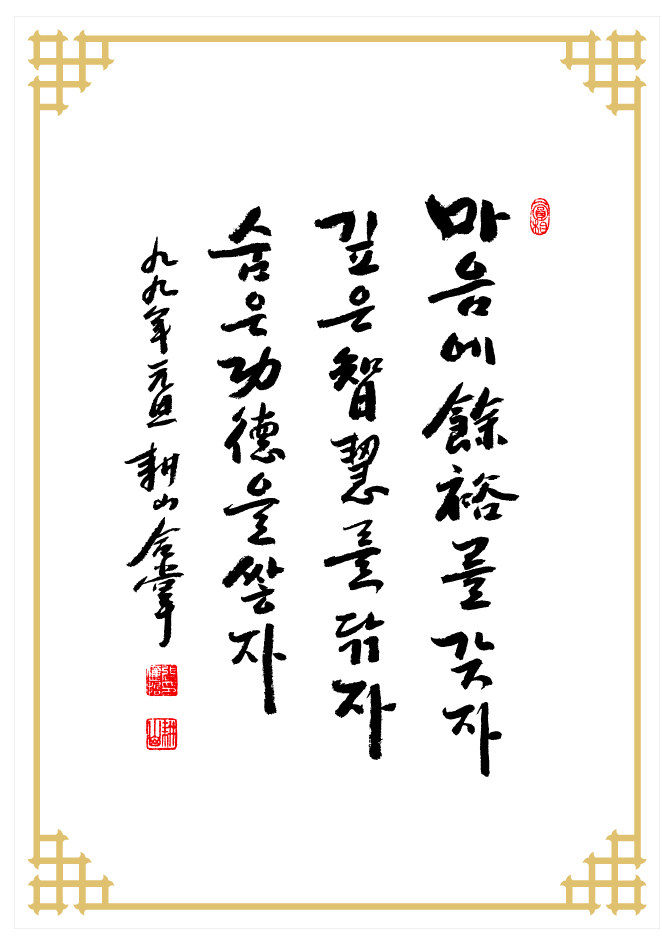 마음에 餘裕를 갖자
깊은 智慧를 닦자
숨은 功德을 쌓자
九九年 元旦 耕山 合掌
耕山